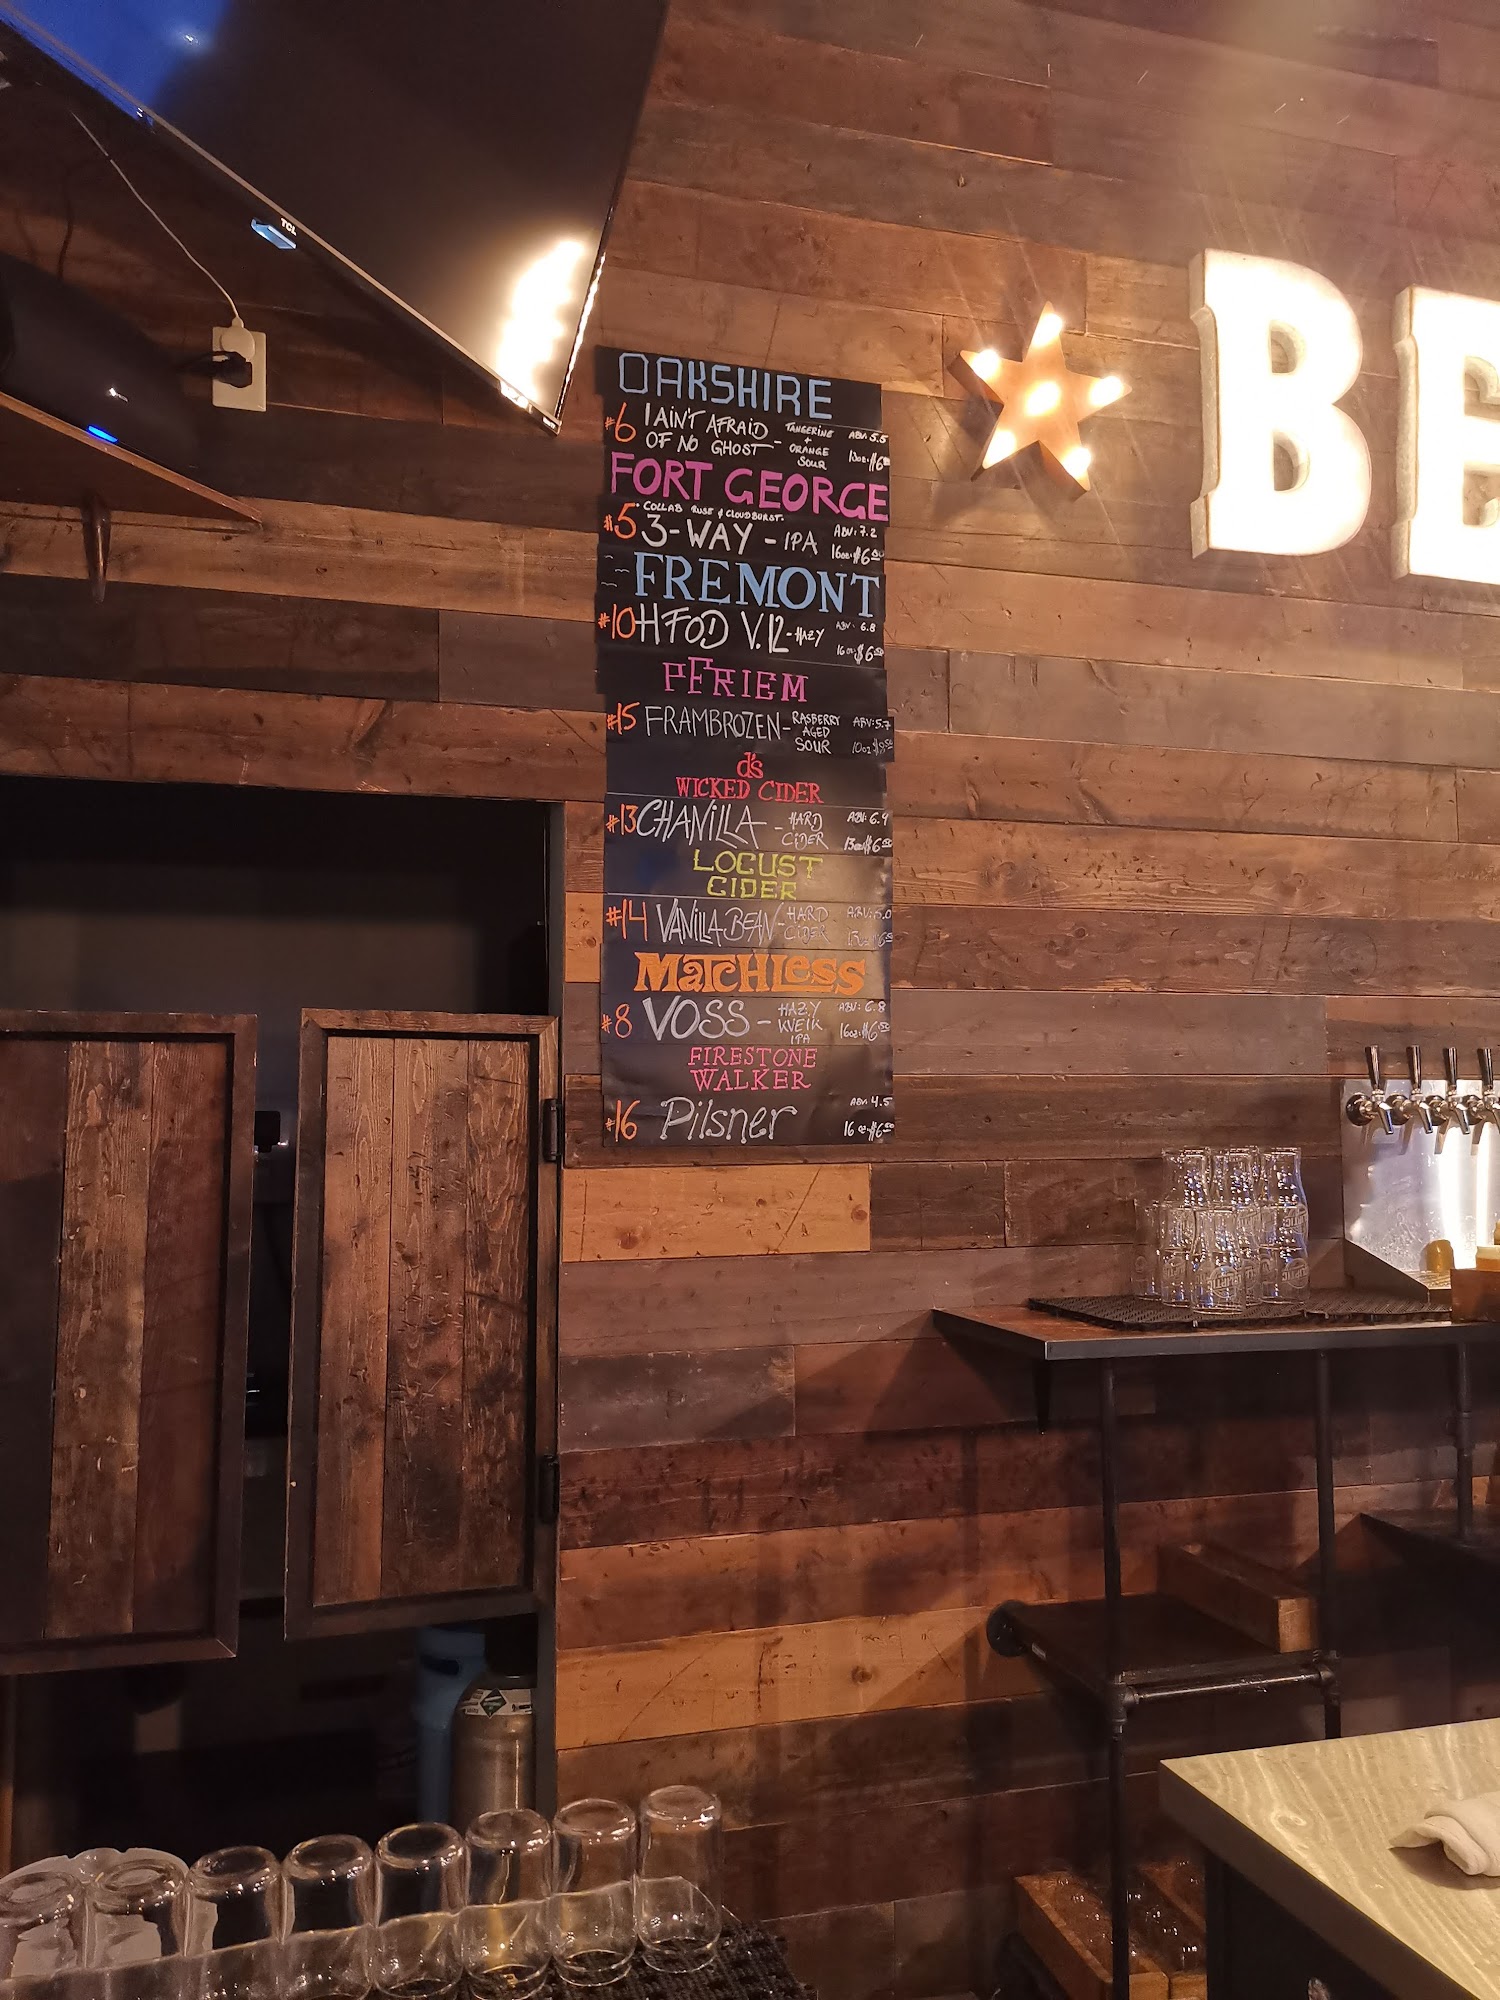 TCL
BE
OAKSHIRE
#6 I AIN'T AFRAID OF NO GHOST - TANGERINE + ORANGE SOUR ABV 5.5 13oz. $6
FORT GEORGE
COLLAB RUSE & CLOUDBURST
#5 3-WAY - IPA ABV: 7.2 16oz. $6
FREMONT
#10 HFOD V.12 - HAZY ABV: 6.8 16oz. $6 50
PFRIEM
#15 FRAMBROZEN - RASBERRY AGED SOUR ABV: 5.7 10oz
d's
WICKED CIDER
#13 CHANILLA - HARD CIDER ABV: 6.9 13oz $6 50
LOCUST
CIDER
#14 VANILLA BEAN - HARD CIDER ABV: 5.0 $6 50
MATCHLESS
#8 VOSS - HAZY KVEIK IPA ABV: 6.8 16oz. $6 50
FIRESTONE
WALKER
#16 Pilsner ABV 4.5 16 oz. $6 50